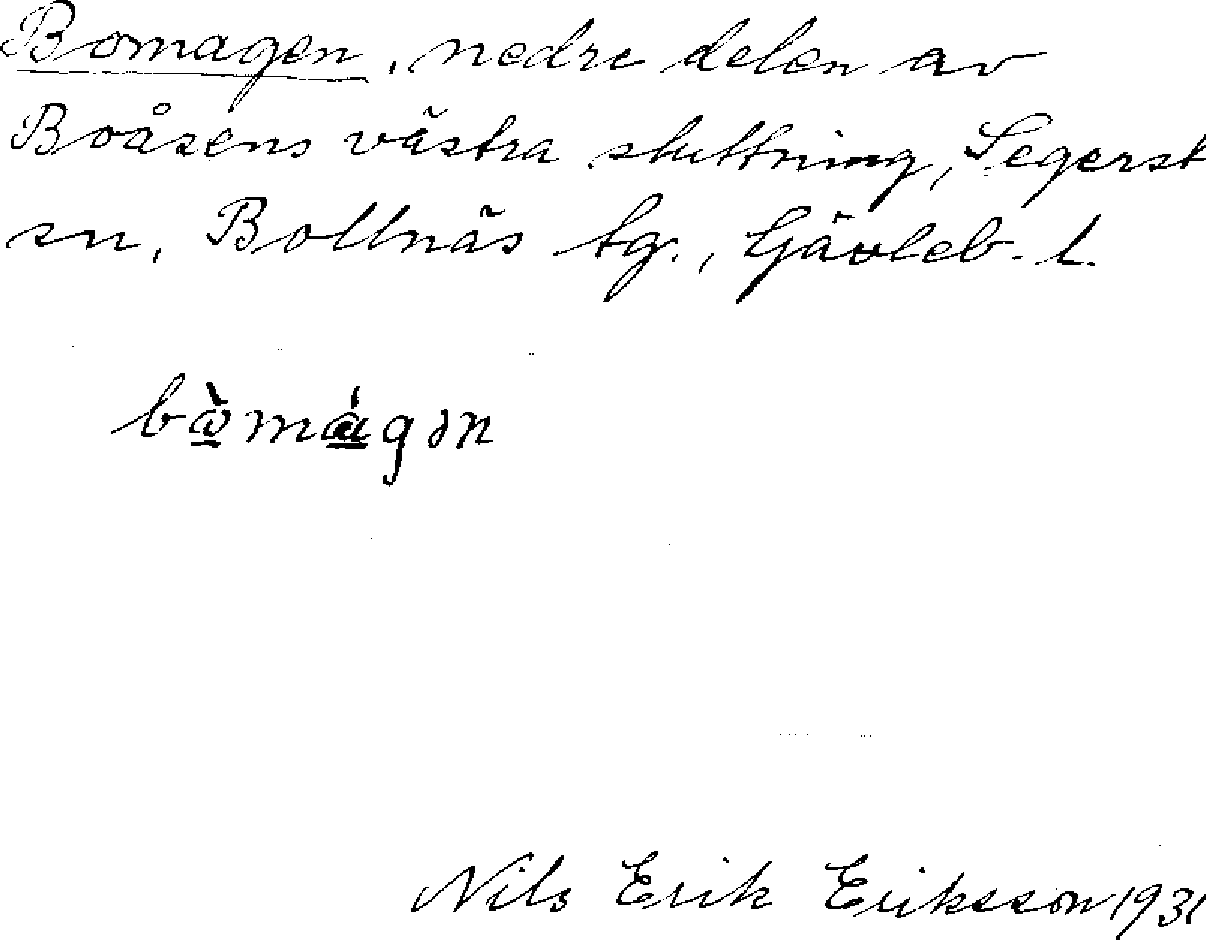 Bomagen, nedre delen av
Boåsens västra sluttning, Segerst
sn, Bollnäs tg., Gävleb. l.
Nils Erik Eriksson 1931